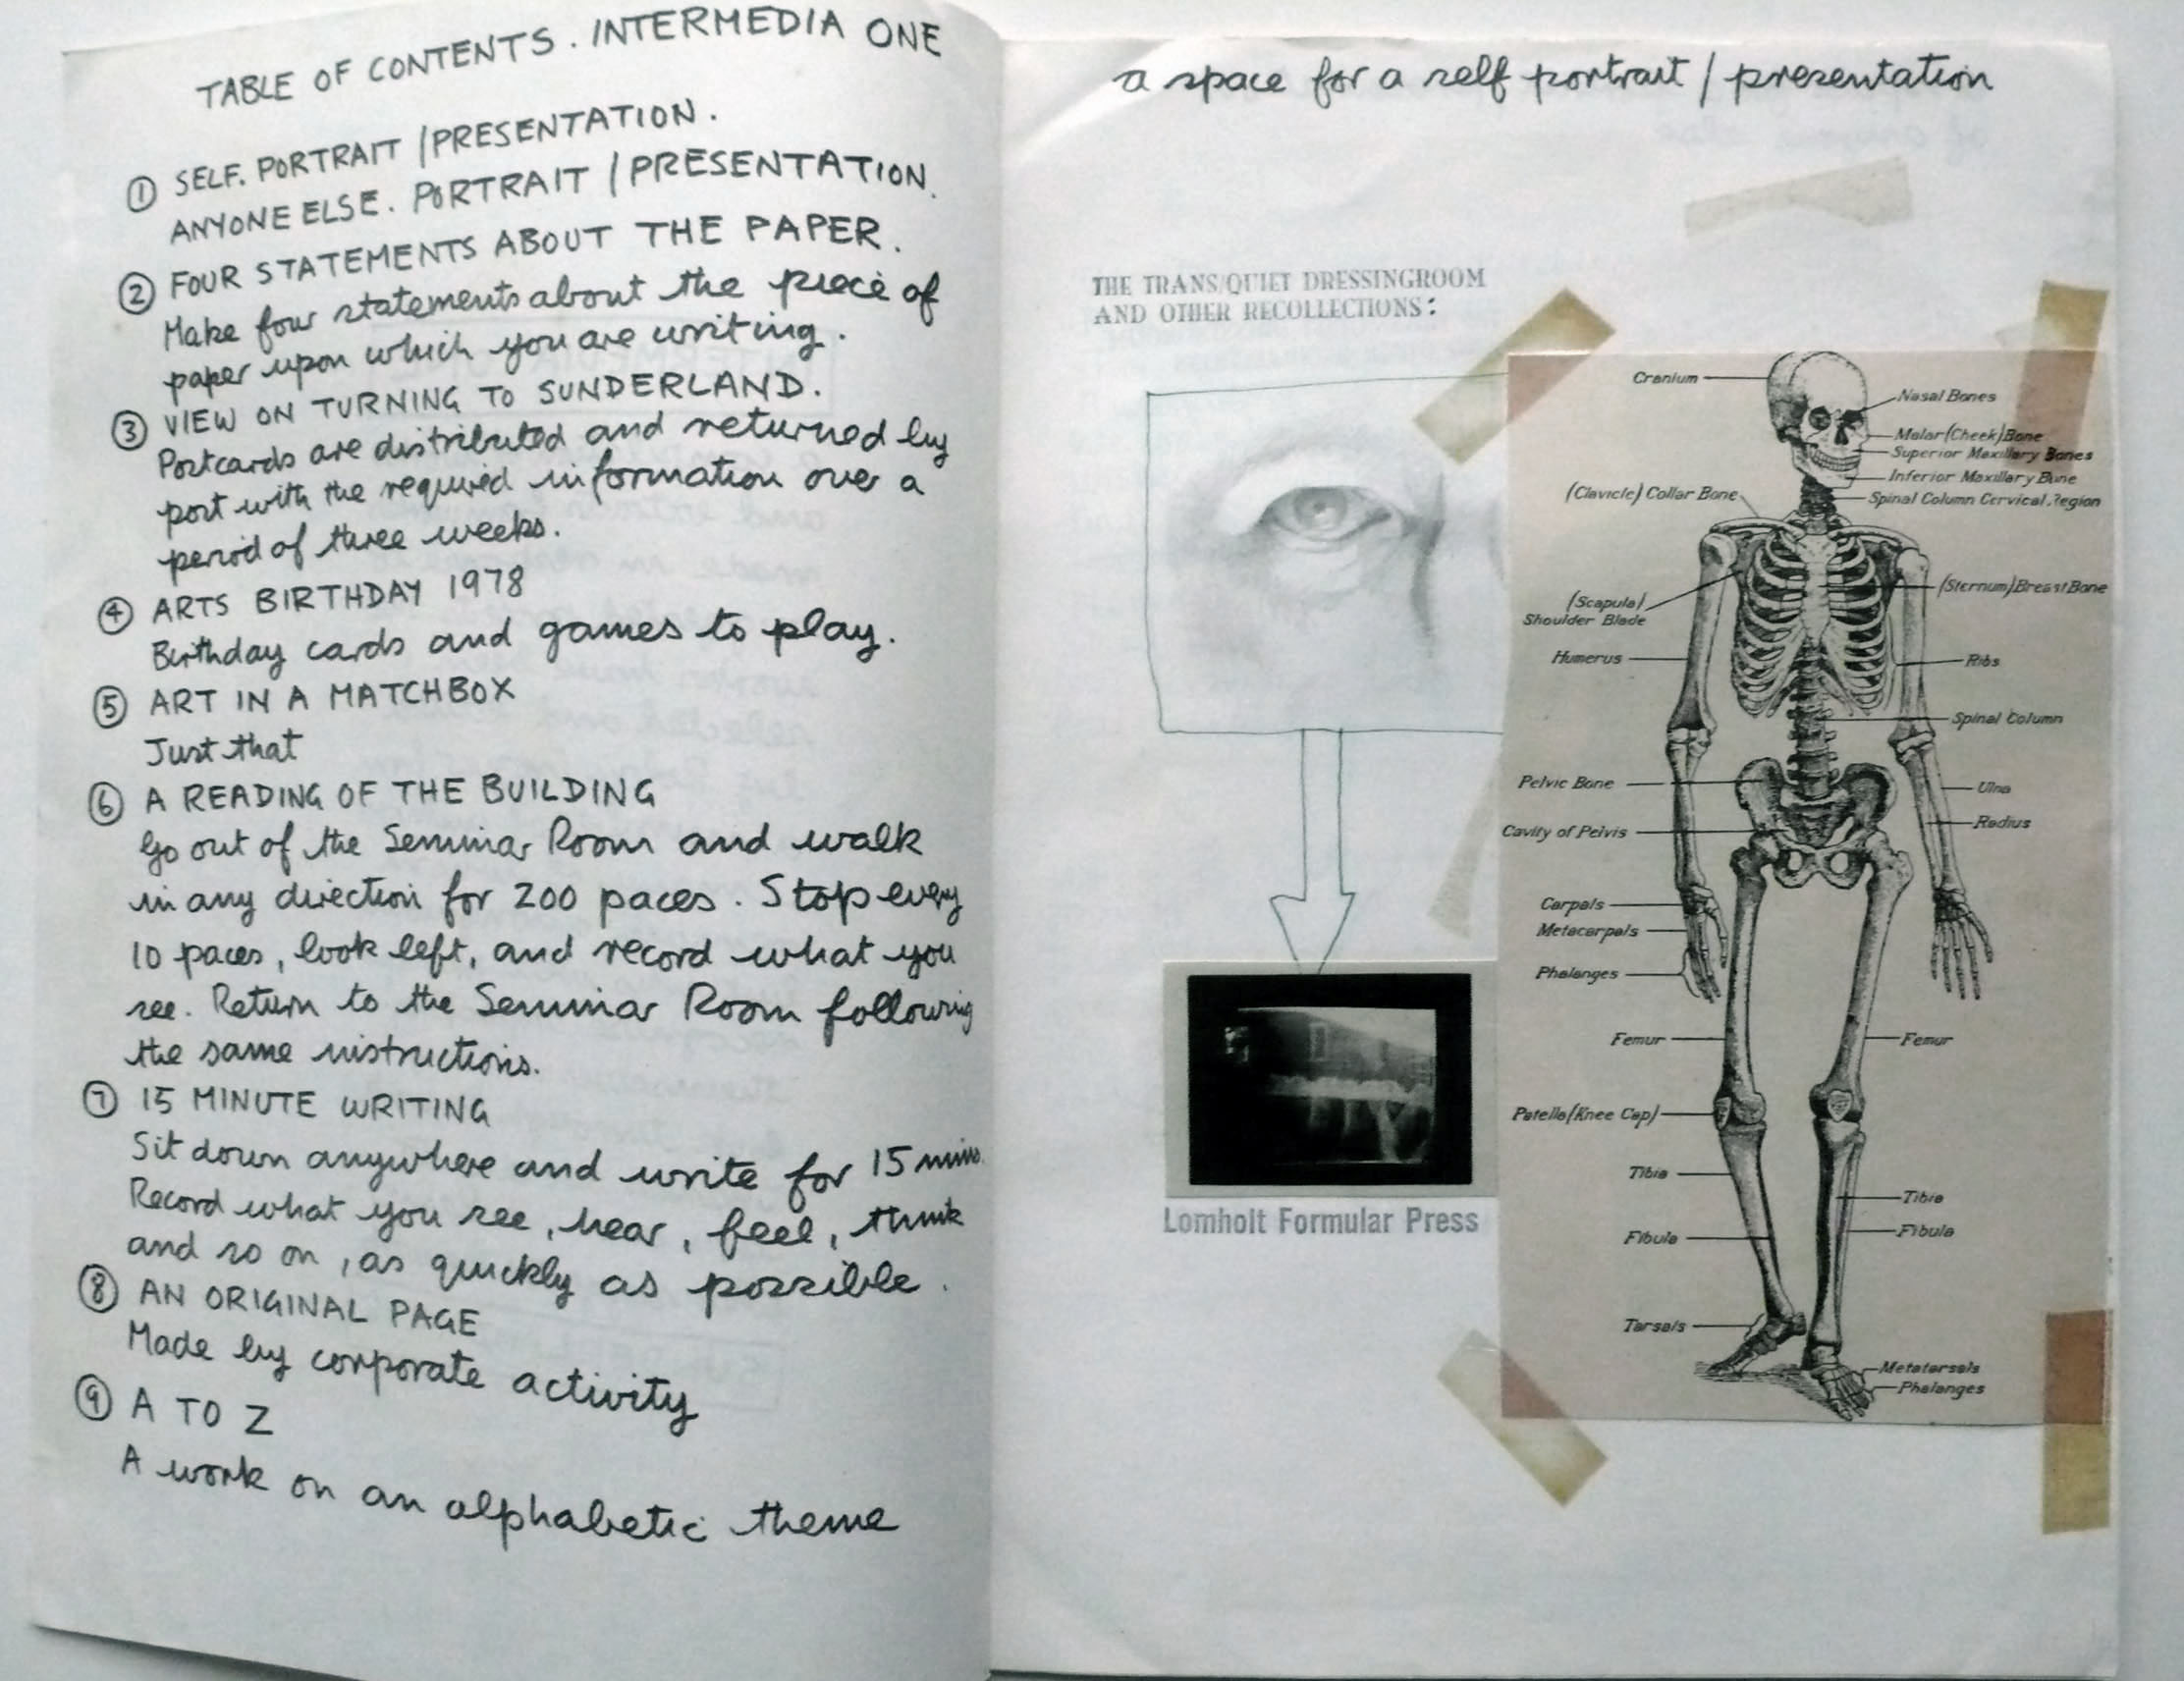 TABLE OF CONTENTS. INTERMEDIA ONE
① SELF. PORTRAIT / PRESENTATION.
ANYONE ELSE. PORTRAIT / PRESENTATION.
② FOUR STATEMENTS ABOUT THE PAPER.
Make four statements about the piece of
paper upon which you are writing.
③ VIEW ON TURNING TO SUNDERLAND.
Postcards are distributed and returned by
post with the required information over a
period of three weeks.
④ ARTS BIRTHDAY 1978
Birthday cards and games to play.
⑤ ART IN A MATCHBOX
Just that
⑥ A READING OF THE BUILDING
Go out of the Seminar Room and walk
in any direction for 200 paces. Stop every
10 paces, look left, and record what you
see. Return to the Seminar Room following
the same instructions.
⑦ 15 MINUTE WRITING
Sit down anywhere and write for 15 mins.
Record what you see, hear, feel, think
and so on, as quickly as possible.
⑧ AN ORIGINAL PAGE
Made by corporate activity
⑨ A TO Z
A work on an alphabetic theme
a space for a self portrait / presentation
THE TRANS/QUIET DRESSINGROOM
AND OTHER RECOLLECTIONS:
Lomholt Formular Press
Cranium
Nasal Bones
Malar (Cheek) Bone
Superior Maxillary Bones
Inferior Maxillary Bone
(Clavicle) Collar Bone
Spinal Column Cervical Region
(Sternum) Breast Bone
(Scapula)
Shoulder Blade
Humerus
Ribs
Spinal Column
Pelvic Bone
Ulna
Cavity of Pelvis
Radius
Carpals
Metacarpals
Phalanges
Femur
Femur
Patella (Knee Cap)
Tibia
Tibia
Fibula
Fibula
Tarsals
Metatarsals
Phalanges